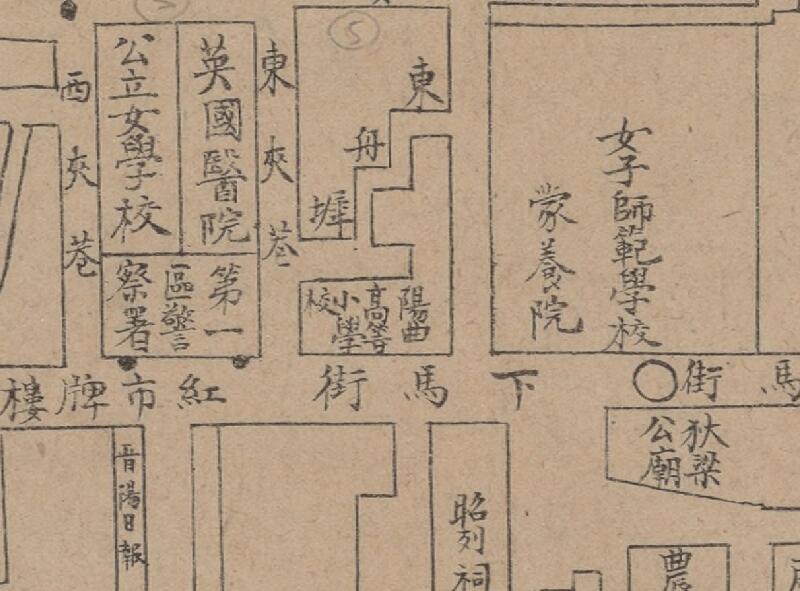 5
西夾巷
公立女學校
英國醫院
東夾巷
東舟
女子師範學校
蒙養院
第一
區警
察署
陽曲
高等
小學
校
馬街
下馬街
紅市牌樓
狄梁
公廟
晋陽日報
昭列祠
農